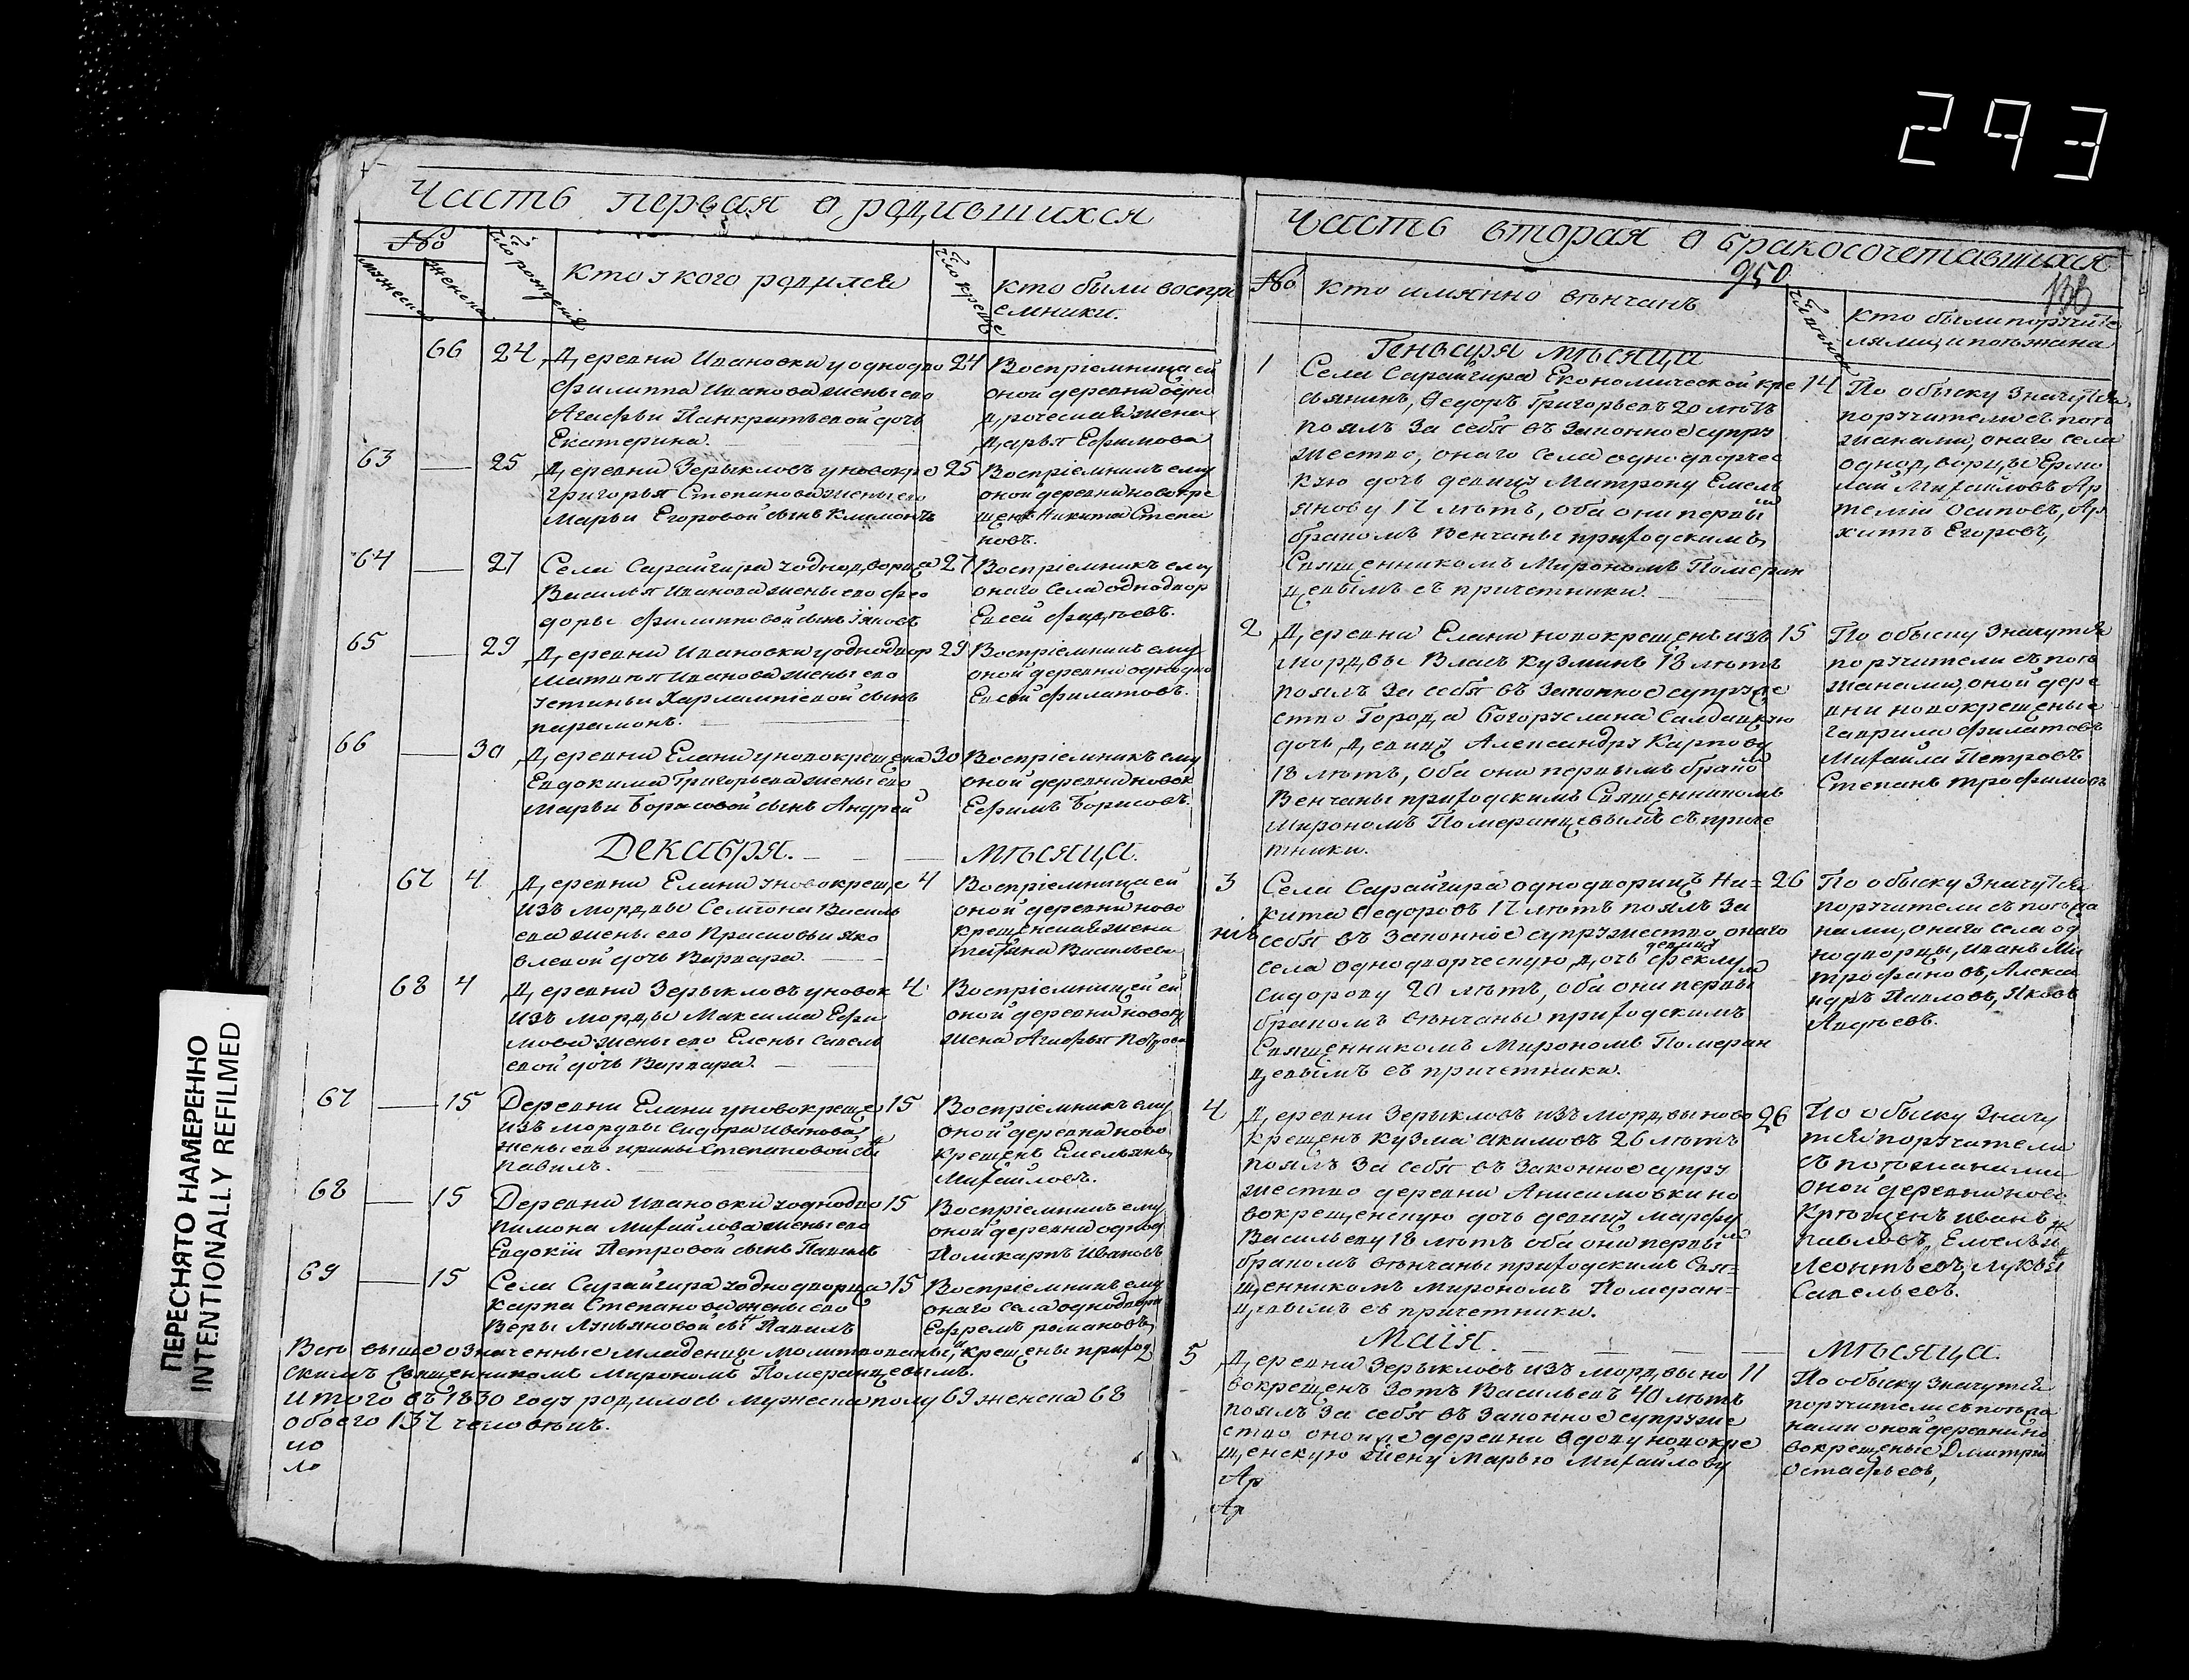 293
ПЕРЕСНЯТО НАМЕРЕННО
INTENTIONALLY REFILMED
Часть первая о родившихся
№
мужеска
женска
Число рождения
Кто у кого родился
Число креще
Кто были воспри
емники.
66 24 Деревни Ивановки у однодво 24
Филиппа Иванова жены его
Агафьи Панкратьевой дочь
Екатерина.
Восприемница ей
оной деревни одно
дворческая жена
Дарья Ефимова
63 25 Деревни Зерыкловъ у новокре 25
Григорья Степанова жены его
Марьи Егоровой сынъ Климонтъ
Восприемникъ ему
оной деревни новокре
щенъ Никита Степа
новъ.
64 27 Села Сарайгира у однодворца 27
Василья Иванова жены его Фео
доры Филипповой сынъ Iяковъ
Восприемникъ ему
онаго села однодвор
Евсей Фадѣевъ.
65 29 Деревни Ивановки у однодвор 29
Матвѣя Иванова жены его
Устиньи Харлампiевой сынъ
парамонъ.
Восприемникъ ему
оной деревни однодво
Евсей Филатовъ.
66 30 Деревни Елани у новокрещена 30
Евдокима Григорьева жены его
Марьи Борисовой сынъ Андрей
Восприемникъ ему
оной деревни новок
Ефимъ Борисовъ.
Декабря. мѣсяца.
67 4 Деревни Елани у новокреще 4
изъ мордвы Семiона Василь
ева жены его Прасковьи Яко
влевой дочь Варвара.
Восприемница ей
оной деревни ново
крещенская жена
татiяна Васильева
68 4 Деревни Зерыкловъ у новок 4
изъ мордвы Максима Ефи
мова жены его Елены Савель
евой дочь Варвара.
Восприемницей ей
оной деревни новокр
жена Агафья Петрова
67 15 Деревни Елани у новокреще 15
изъ мордвы Сидора Иванова
жены его ирины Степановой сы
павилъ.
Восприемникъ ему
оной деревни ново
крещенъ Емельянъ
Михайловъ.
68 15 Деревни Ивановки у однодво 15
пимона Михайлова жены его
Евдокiи Петровой сынъ Павилъ
Восприемникъ ему
оной деревни однод
Поликарпъ Ивановъ
69 15 Села Сарайгира у однодворца 15
карпа Степанова жены его
Веры Лукьяновой сы Павилъ
Восприемникъ ему
онаго села однодворе
Ефремъ романовъ
Всѣ выше означенные младенцы молитвованы, и крещены приход
скимъ священникомъ мирономъ Померанцевымъ.
Итого въ 1830 году родилось мужеска полу 69 женска 68
обоего 137 человѣкъ.
Часть вторая о бракосочетавшихся
950
№
Кто имянно вѣнчанъ
Кто были поручите
лями, и поѣзжана
Генваря мѣсяца
1 Села Сарайгира Економической кре 14
стьянинъ, Федоръ Григорьевъ 20 лѣтъ
поялъ за себя въ законное супру
жество, онаго села однодворчес
кую дочь девицу Матрону Емель
янову 17 лѣтъ, оба они первы
бракомъ Венчаны приходскимъ
Священникомъ Мирономъ Померан
цевымъ съ причетники.
По обыску значутся
поручители съ поѣз
жанами, онаго села
однодворцы Ермо
лай Михайловъ Ар
темiй Осиповъ, Ар
хипъ Егоровъ,
2 Деревни Елани новокрещенъ изъ 15
мордвы Власъ Кузминъ 18 лѣтъ
поялъ за себя въ законное супруже
ство Города Богоруслана Салдацкую
дочь девицу Александру Карпову
18 лѣтъ, оба они первымъ брако
Венчаны приходскимъ Священникомъ
Мирономъ Померанцевымъ съ приче
тники.
По обыску значутся
поручители съ поѣз
жанами, оной дере
вни новокрещеные
гаврила филатовъ
Михайла Петровъ
Степанъ трофимовъ
3 Села Сарайгира однодворицъ Ни= 26
кита Федоровъ 17 лѣтъ поялъ за
себя въ законное супружество, онаго
села однодворческую дочь девицу Феклу
Сидорову 20 лѣтъ, оба они первы
бракомъ вѣнчаны приходскимъ
Священникомъ Мирономъ Померан
цевымъ съ причетники.
По обыску значутся
поручители съ поѣзжа
нами, онаго села од
нодворцы, иванъ Ми
трофановъ, Алекса
ндръ Павловъ, Яковъ
Авдѣевъ.
4 Деревни Зерыкловъ изъ мордвы ново 26
крещенъ Кузма Акимовъ 26 лѣтъ
поялъ за себя въ законное супру
жество деревни Анисимовки но
вокрещенскую дочь девицу марфу
Васильеву 18 лѣтъ оба они первы
бракомъ вѣнчаны приходскимъ Свя=
щенникомъ мирономъ Померан=
цевымъ съ причетники.
По обыску значу
тся поручители
съ поѣзжанами
оной деревни ново
крѣщенъ иванъ
павловъ, Емелья
Леонтьевъ, Лукья
Савельевъ.
Маiя. мѣсяца.
5 Деревни Зерыкловъ изъ мордвы но 11
вокрещенъ Зотъ Васильевъ 40 лѣтъ
поялъ за себя въ законное супруже
ство оной же деревни вдову новокре
щенскую жену Марью Михайлову
По обыску значутся
поручители съ поѣзжа
нами оной деревни но
вокрещеные Дмитрiй
Остафьевъ,